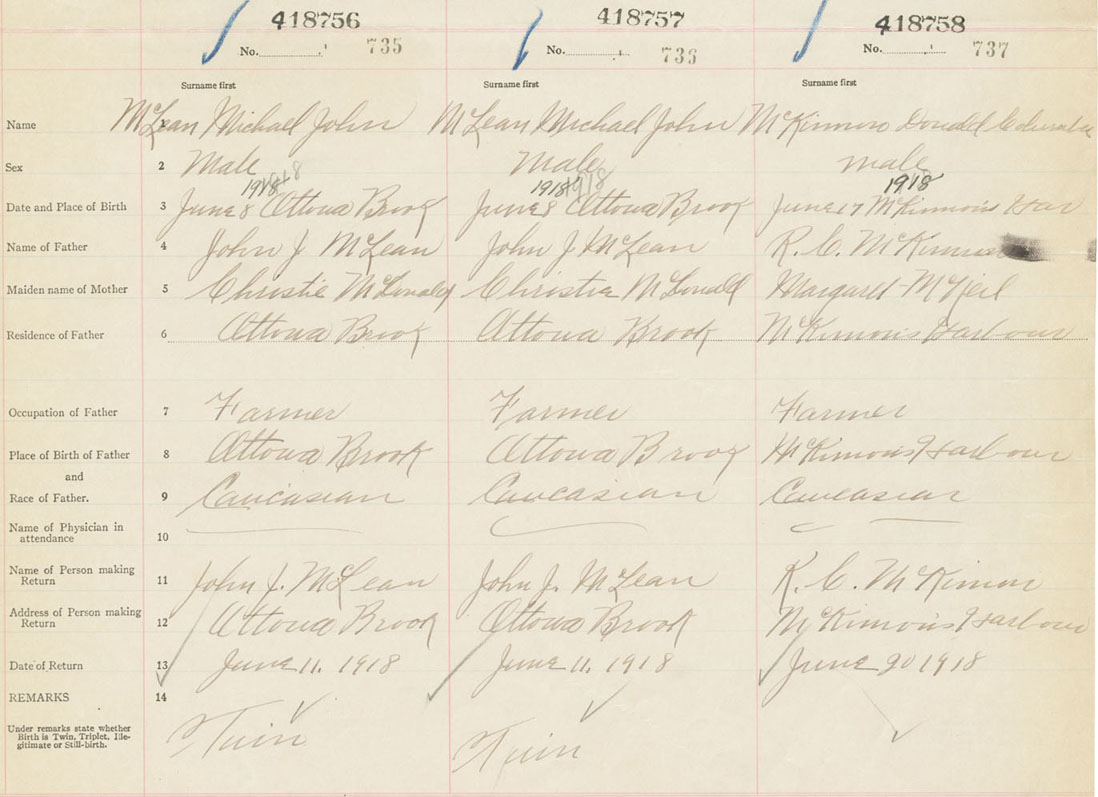 418756 418757 418758
No. 735 No. 736 No. 737
Surname first Surname first Surname first
Name 1 McLean Michael John McLean Michael John McKinnon Donald Columba
Sex 2 Male Male male
1918 1918 1918 1918 1918
Date and Place of Birth 3 June 8 Ottowa Brook June 8 Ottowa Brook June 17 McKinnon's Har
Name of Father 4 John J McLean John J McLean R. C. McKinnon
Maiden name of Mother 5 Christie McDonald Christie McDonald Margaret McNeil
Residence of Father 6 Ottowa Brook Ottowa Brook McKinnon's Harbour
Occupation of Father 7 Farmer Farmer Farmer
Place of Birth of Father 8 Ottowa Brook Ottowa Brook McKinnon's Harbour
and
Race of Father. 9 Caucasian Caucasian Caucasian
Name of Physician in
attendance 10
Name of Person making
Return 11 John J. McLean John J. McLean R. C. McKinnon
Address of Person making
Return 12 Ottowa Brook Ottowa Brook McKinnon's Harbour
Date of Return 13 June 11. 1918 June 11. 1918 June 20 1918
REMARKS 14
Under remarks state whether
Birth is Twin, Triplet, Ille-
gitimate or Still-birth.
Twin Twin